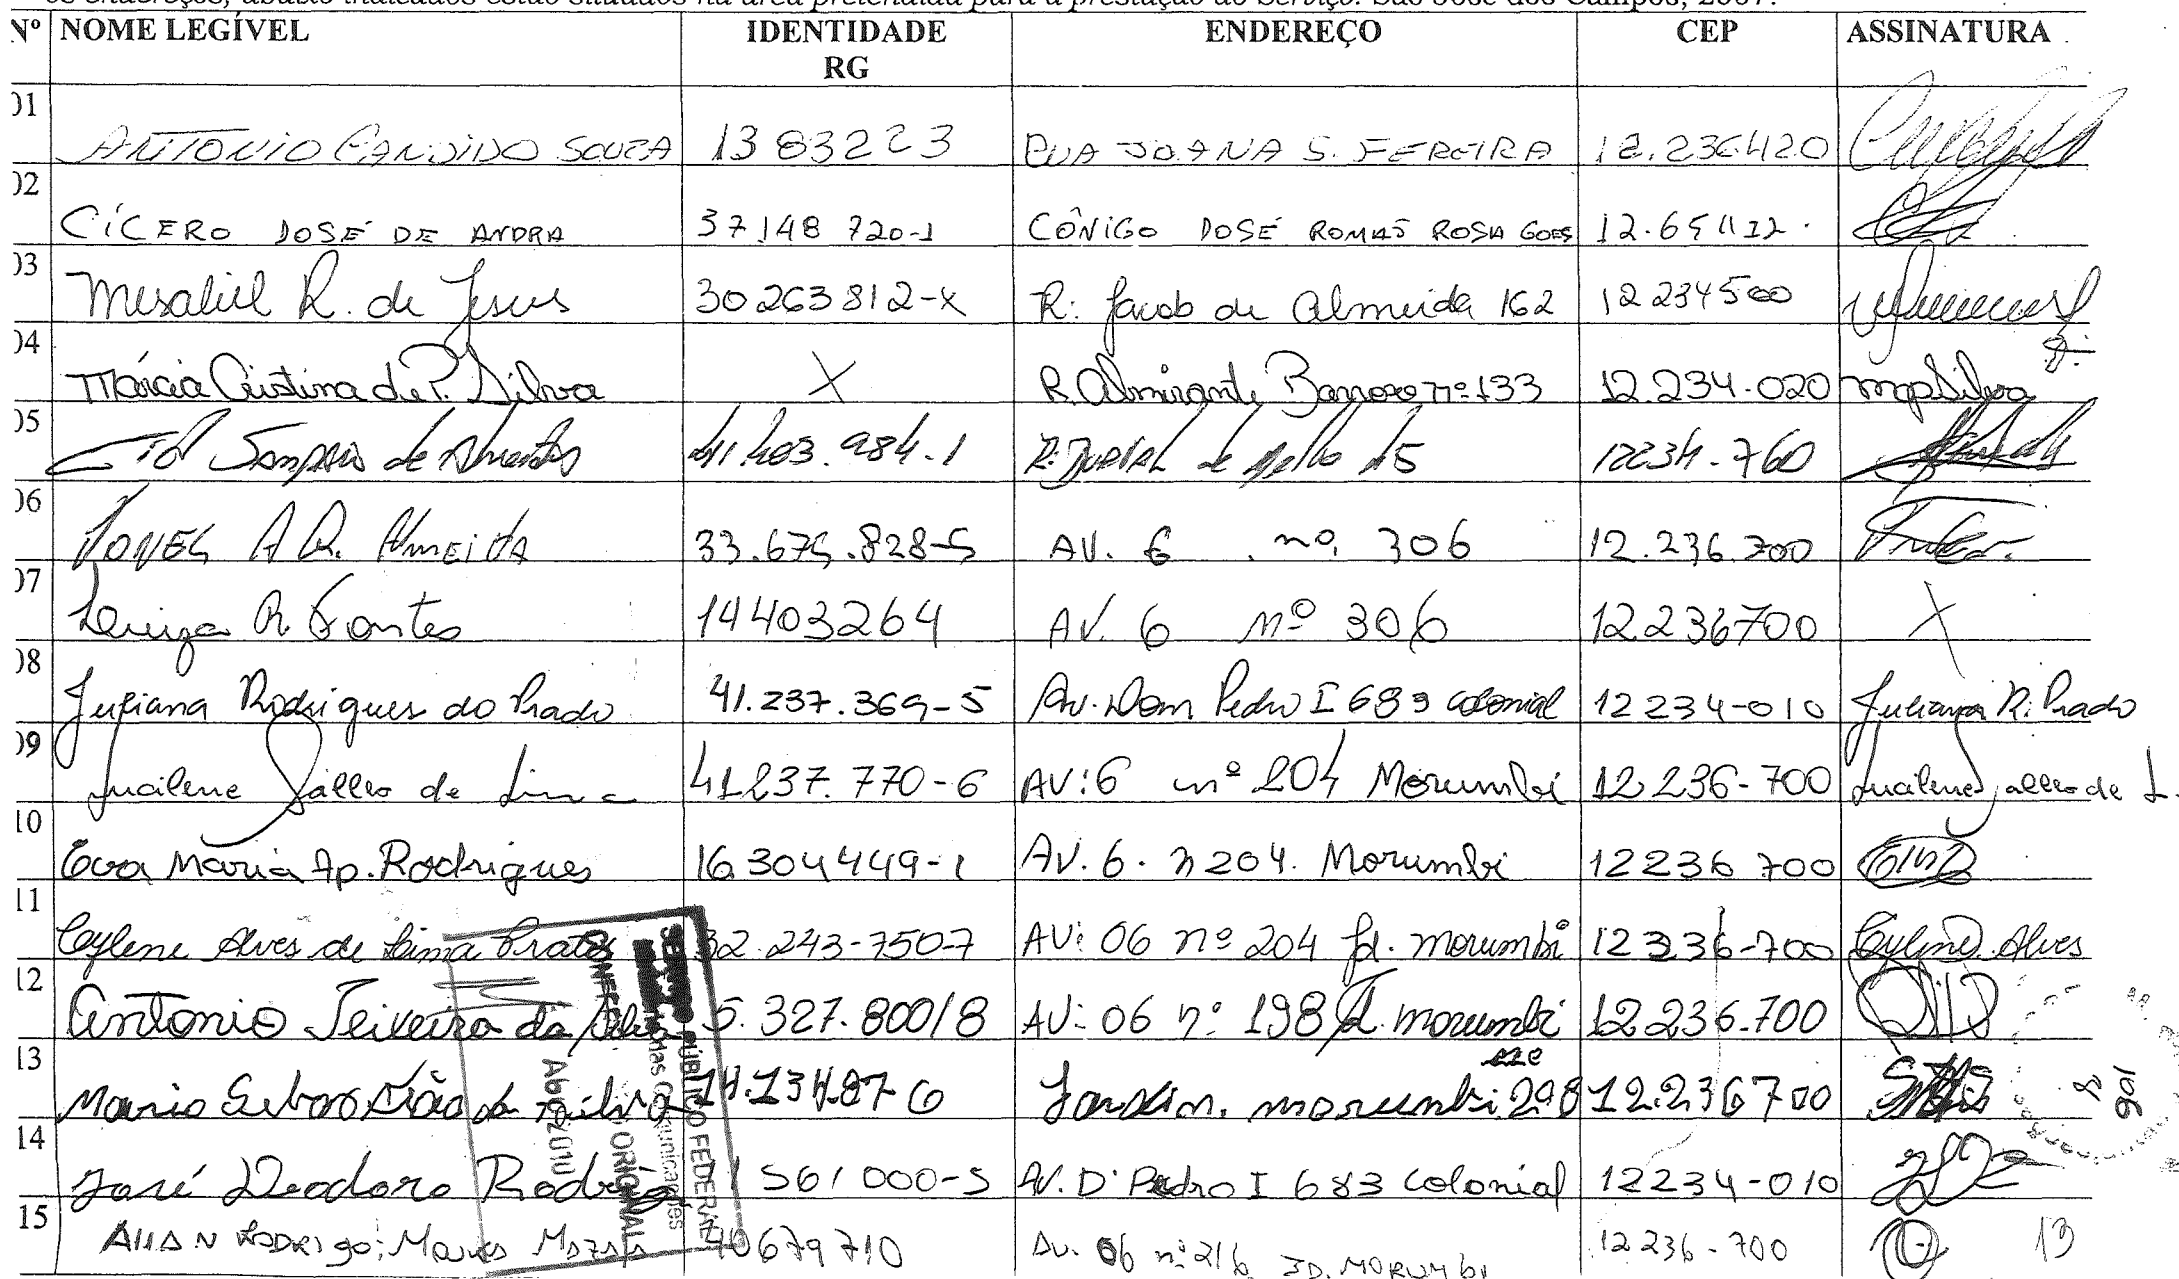 os endereços, abaixo indicados estão situados na área pretendida para a prestação do Serviço. São José dos Campos, 2007.
Nº NOME LEGÍVEL IDENTIDADE RG ENDEREÇO CEP ASSINATURA
01 ANTONIO CANDIDO SOUZA 1383223 RUA JOANA S. FEREIRA 12.236420
02 CÍCERO JOSÉ DE ANDRA 37.148 720-1 CÔNIGO JOSÉ ROMÃO ROSA GOES
03 R. de Jesus 30263812-X R: Jacob de Almeida 162 12234500
04 Márcia Cristina de P. Silva X R. Almirante Barroso nº 133 12.234-020 mapSilva
05 Cid de 41.403.984-1 R: de Mello 15 12234-760
06 A R. Almeida 33.675.828-5 AV. 6 nº 306 12.236.700
07 R. Fontes 14403264 AV. 6 nº 306 12.236700 X
08 Juliana Rodrigues do Prado 41.237.369-5 Av. Dom Pedro I 683 colonial 12234-010 Juliana R. Prado
09 Lucilene Salles de Lima 41.237.770-6 AV: 6 nº 204 Morumbi 12.236-700 Lucilene Salles de L.
10 Eva Maria Ap. Rodrigues 16.304449-1 AV. 6. n 204. Morumbi 12236 700
11 Cylene Alves de Lima Prates 32.243-750-7 AV: 06 nº 204 Jd. morumbi 12236-700 Cylene Alves
12 Antonio Teixeira da Silva 5.327.800/8 AV: 06 nº 198 Jd. morumbi 12.236.700
13 Mario Sebastião da Silva 14.134.876 Jardim. morumbi 298 12.236700
14 José Deodoro Rodrig 561000-5 AV. D. Pedro I 683 colonial 12234-010
15 ALLAN RODRIGO 40679710 Av. 06 nº 216 JD. MORUMBI 12236-700 13
SERVIÇO PÚBLICO FEDERAL
das Comunicações
CONFERE ORIGINAL
106